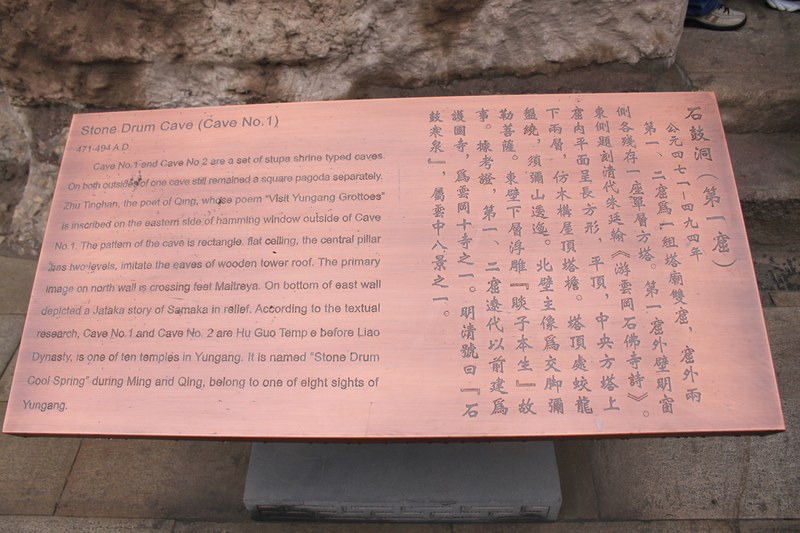 Stone Drum Cave (Cave No.1)
471-494 A.D
Cave No.1 and Cave No 2 are a set of stupa shrine typed caves
On both outsides of one cave still remained a square pagoda separately.
Zhu Tinghan, the poet of Qing, whose poem "Visit Yungang Grottoes"
is inscribed on the eastern side of hamming window outside of Cave
No.1. The pattern of the cave is rectangle, flat ceiling, the central pillar
has two-levels, imitate the eaves of wooden tower roof. The primary
image on north wall is crossing feet Maitreya. On bottom of east wall
depicted a Jataka story of Samaka in relief. According to the textual
research, Cave No.1 and Cave No. 2 are Hu Guo Temp e before Liao
Dynasty, is one of ten temples in Yungang. It is named "Stone Drum
Cool Spring" during Ming and Qing, belong to one of eight sights of
Yungang.
石鼓洞（第一窟）
公元四七一－四九四年
第一、二窟爲一組塔廟雙窟，窟外兩
側各残存一座單層方塔。第一窟外壁明窗
東側題刻清代朱廷翰《游雲岡石佛寺詩》。
窟内平面呈長方形，平頂，中央方塔上
下兩層，仿木構屋頂塔檐。塔頂處蛟龍
盤繞，須彌山透迤。北壁主像爲交脚彌
勒菩薩。東壁下層浮雕『睒子本生』故
事。據考證，第一、二窟遼代以前建爲
護國寺，爲雲岡十寺之一。明清號曰『石
鼓寒泉』，屬雲中八景之一。